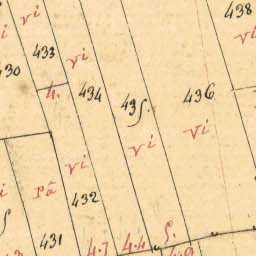 438
vi
vi
433
vi
430
4.
434
435.
436
vi
vi
vi
rā
432
431
4.7
4.4